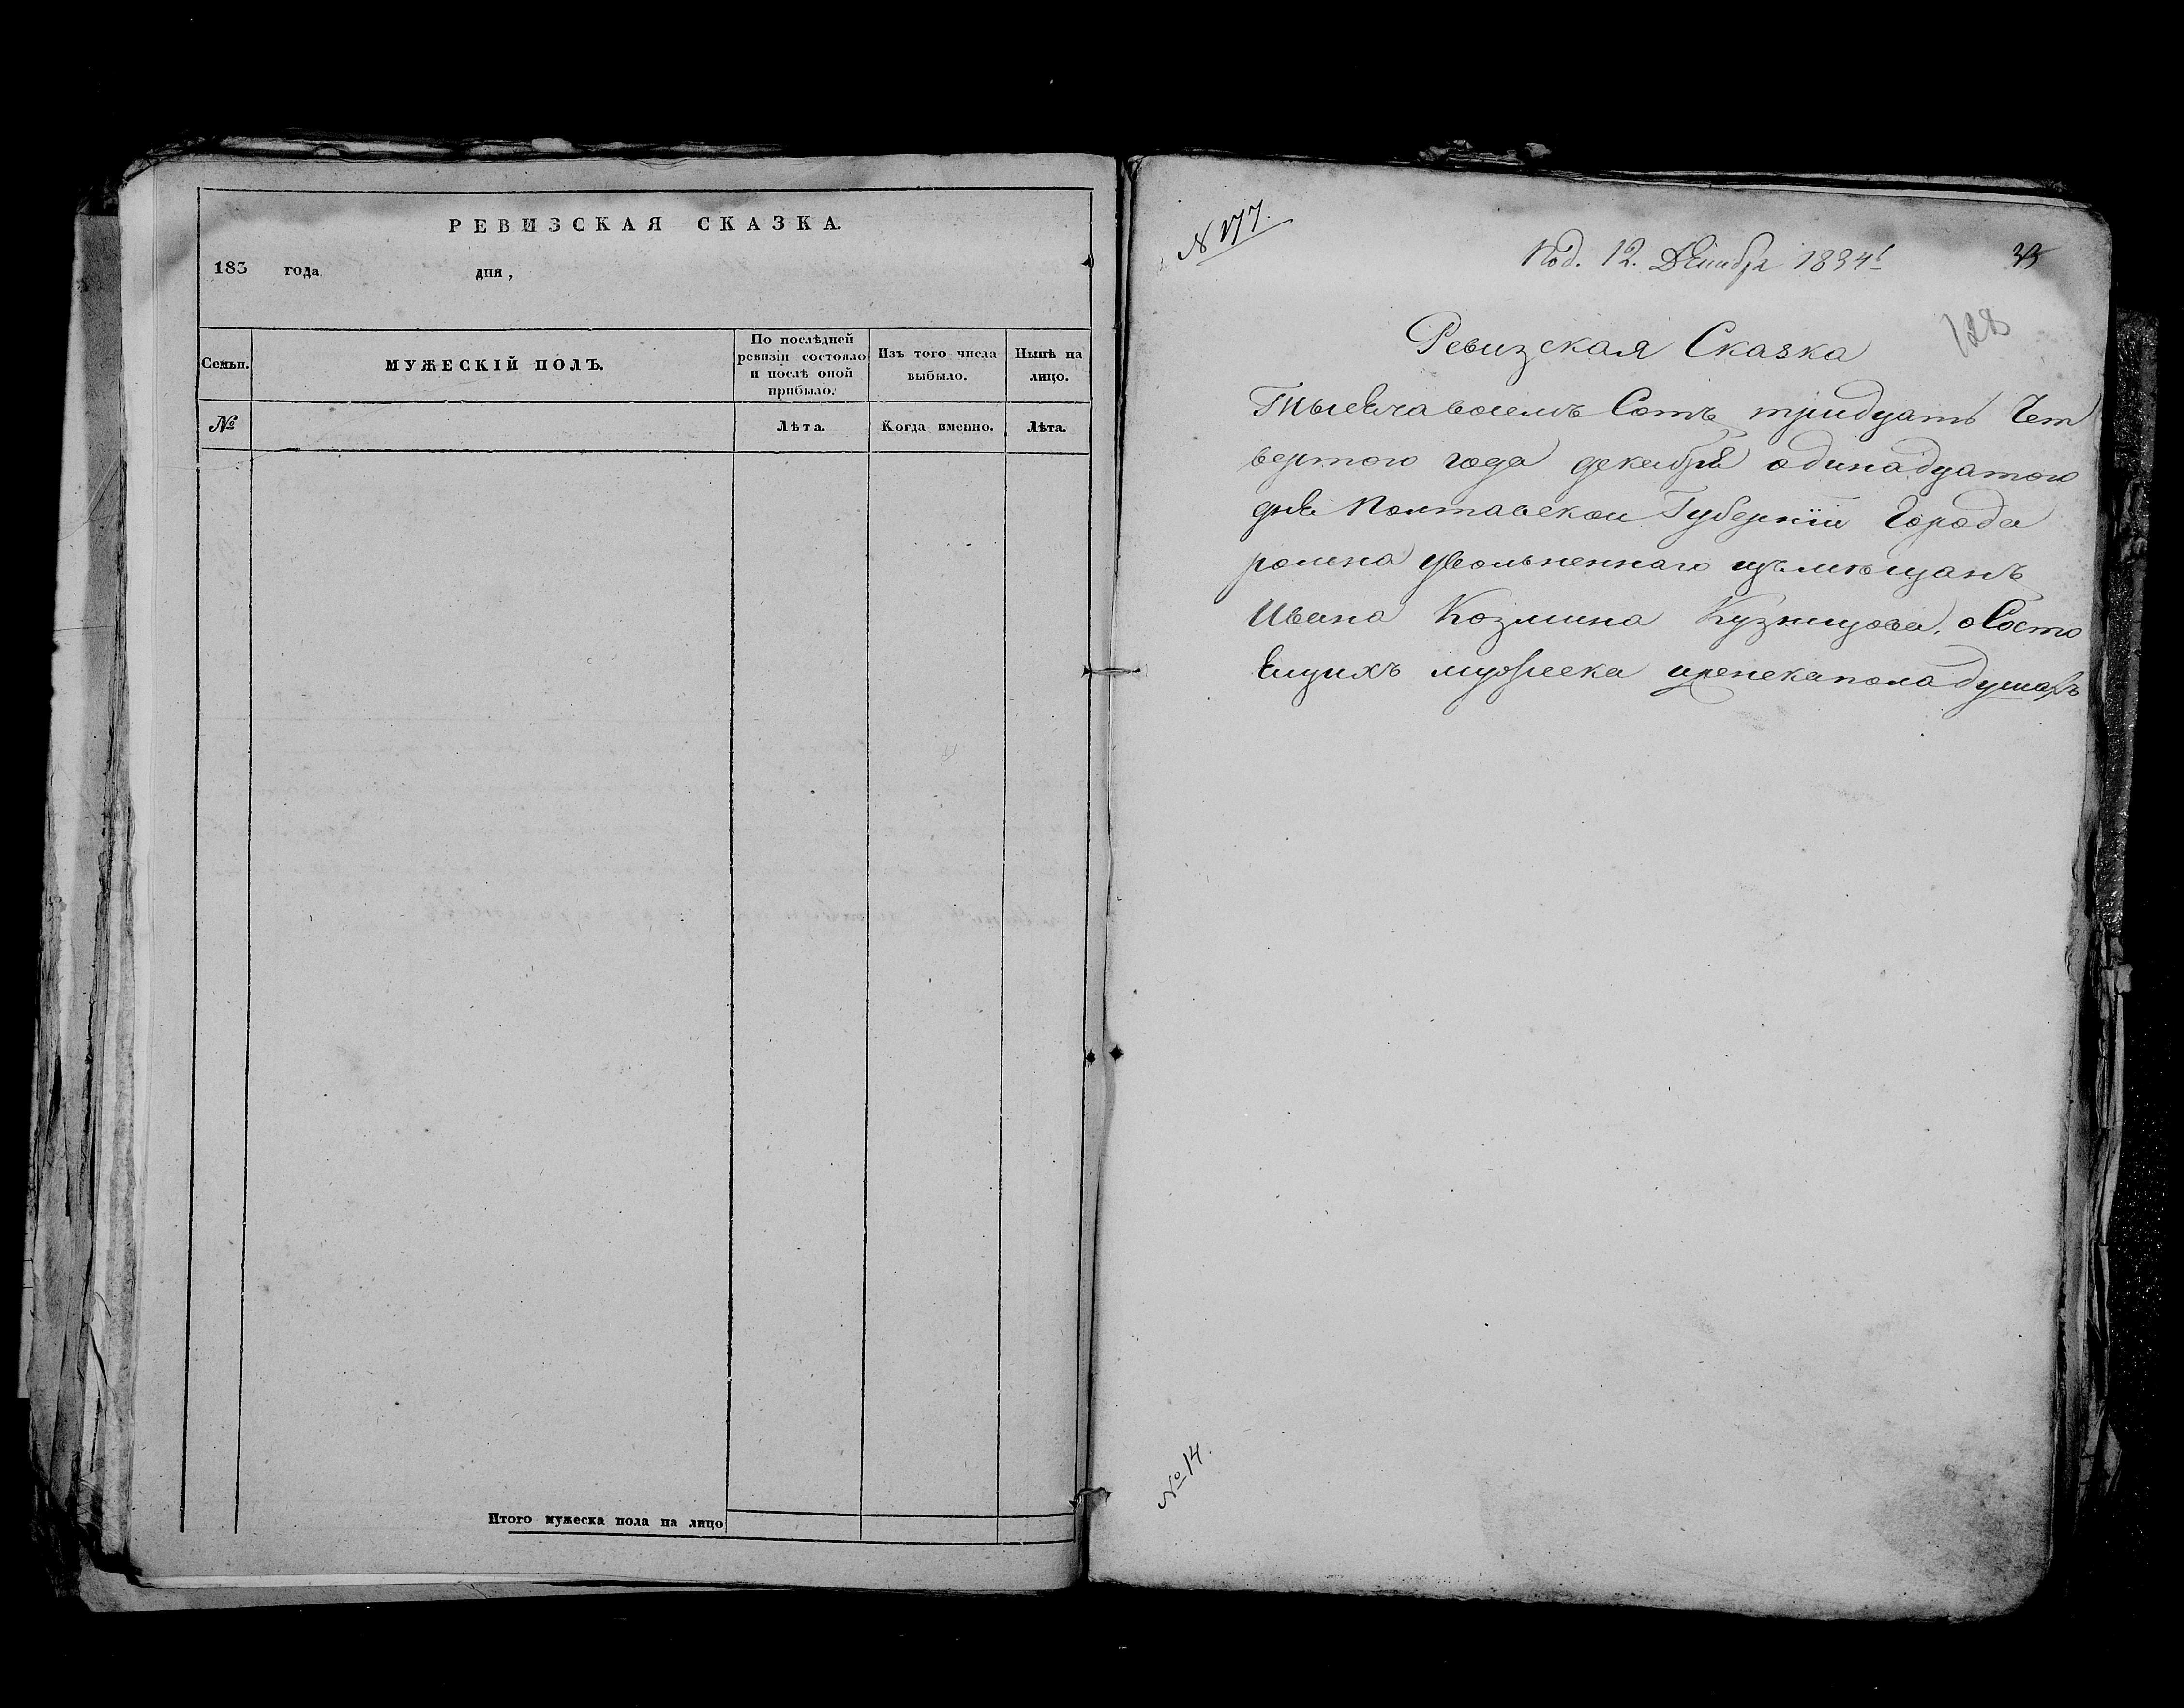 РЕВИЗСКАЯ СКАЗКА.
183 года дня,
Семьи.
МУЖЕСКІЙ ПОЛЪ.
По послѣдней ревизіи состояло и послѣ оной прибыло.
Изъ того числа выбыло.
Нынѣ на лицо.
№
Лѣта.
Когда именно.
Лѣта.
Итого мужеска пола на лицо
№ 177.
Под. 12. Декабря 1834
33
128
Ревизская Сказка
Тысеча восемъ Сотъ тридцать Чет
вертого года декабря одинадцатого
дня Полтавскои Губерніи Города
ромна уволненнаго изъ мѣщанъ
Ивана Козмина Кузнецова, о Состо
ящихъ мужеска и женска пола душахъ
№ 14.